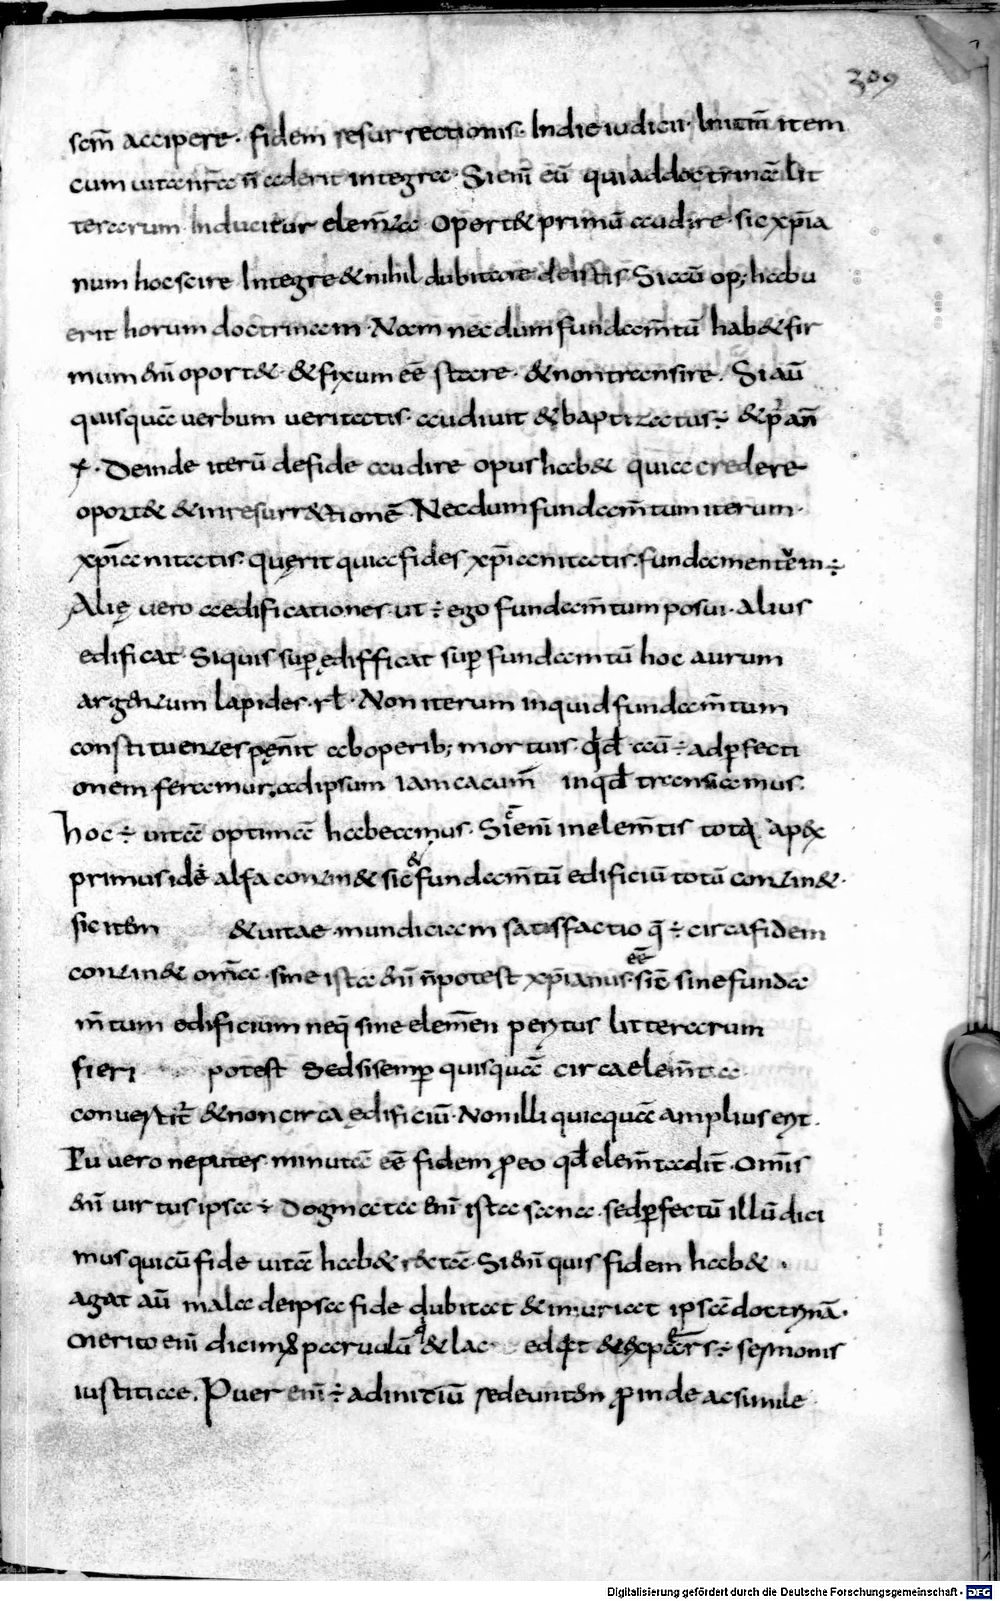 309
scm̄ accipere· fidem resurrectionis· Indie iudicii· Initiū item
cum uitae nr̄ae n̄ ederit integrae· Si enī eū qui addoctrinā lit
terarum Inducitur elem̄ta Oport& primū audire· sic xp̄ia
num hoc scire Integre & nihil dubitare deistis· Si aū op; habu
erit horum doctrinam· Nam necdum fundam̄tū hab& fir
mum enī oport& & fixum eē stare· & non transire. Si aū
quisquā uerbum ueritatis· audiuit & baptizatus ÷ &
Deinde iterū defide audire opus hab& quia credere
oport& & inresurr&tionē· Necdum fundam̄tum iterum·
xp̄ianitatis· quęrit quia fides xp̄ianitatis· fundamentum ÷
Alię uero aedificationes· ut ÷ ego fundam̄tum posui· alius
edificat· Siquis sup ędifficat sup fundam̄tū hoc aurum
argentum lapides· rł· Non iterum inquid fundam̄tum
constituentes pęnit aboperib; mortuis· qd aū ÷ adp̄fecti
onem feramur; adipsum inqđ transeamus·
hoc ÷ uitā optimā habeamus· Si enī inelem̄tis totꝗ apex
primus idē alfa contin& sic & fundam̄tū edificiū totū contin&·
sic item & uitae mundiciam satisfactio q̄ ÷ circa fidem
contin& om̄a· sine ista enī n̄potest xp̄ianus eē· sic̄ sine funda
m̄tum edificium neq; sine elem̄en perytus litterarum
fieri potest Sed si semp̄ quisquā circa elem̄ta
conuertit̄ & non circa ędificiū· Non illi quicquā amplius eryt·
Tu uero neputes minutā eē fidem p̄ eo qđ elem̄ta dit̄· Om̄is
enī uirtus ipsa ÷ Dogmata enī ista sana· sed p̄fectū illū dici
mus qui cū fide uitā hab& r&tā· Si enī quis fidem hab&·
agat aū mala deipsa fide dubitat & iniuriat ipsā doctrynā·
Merito enī dicim; paruulū & lac sermonis
iustitiae. Puer enī ÷ adinitiū redeunten p̄inde acsimile
Digitalisierung gefördert durch die Deutsche Forschungsgemeinschaft - DFG